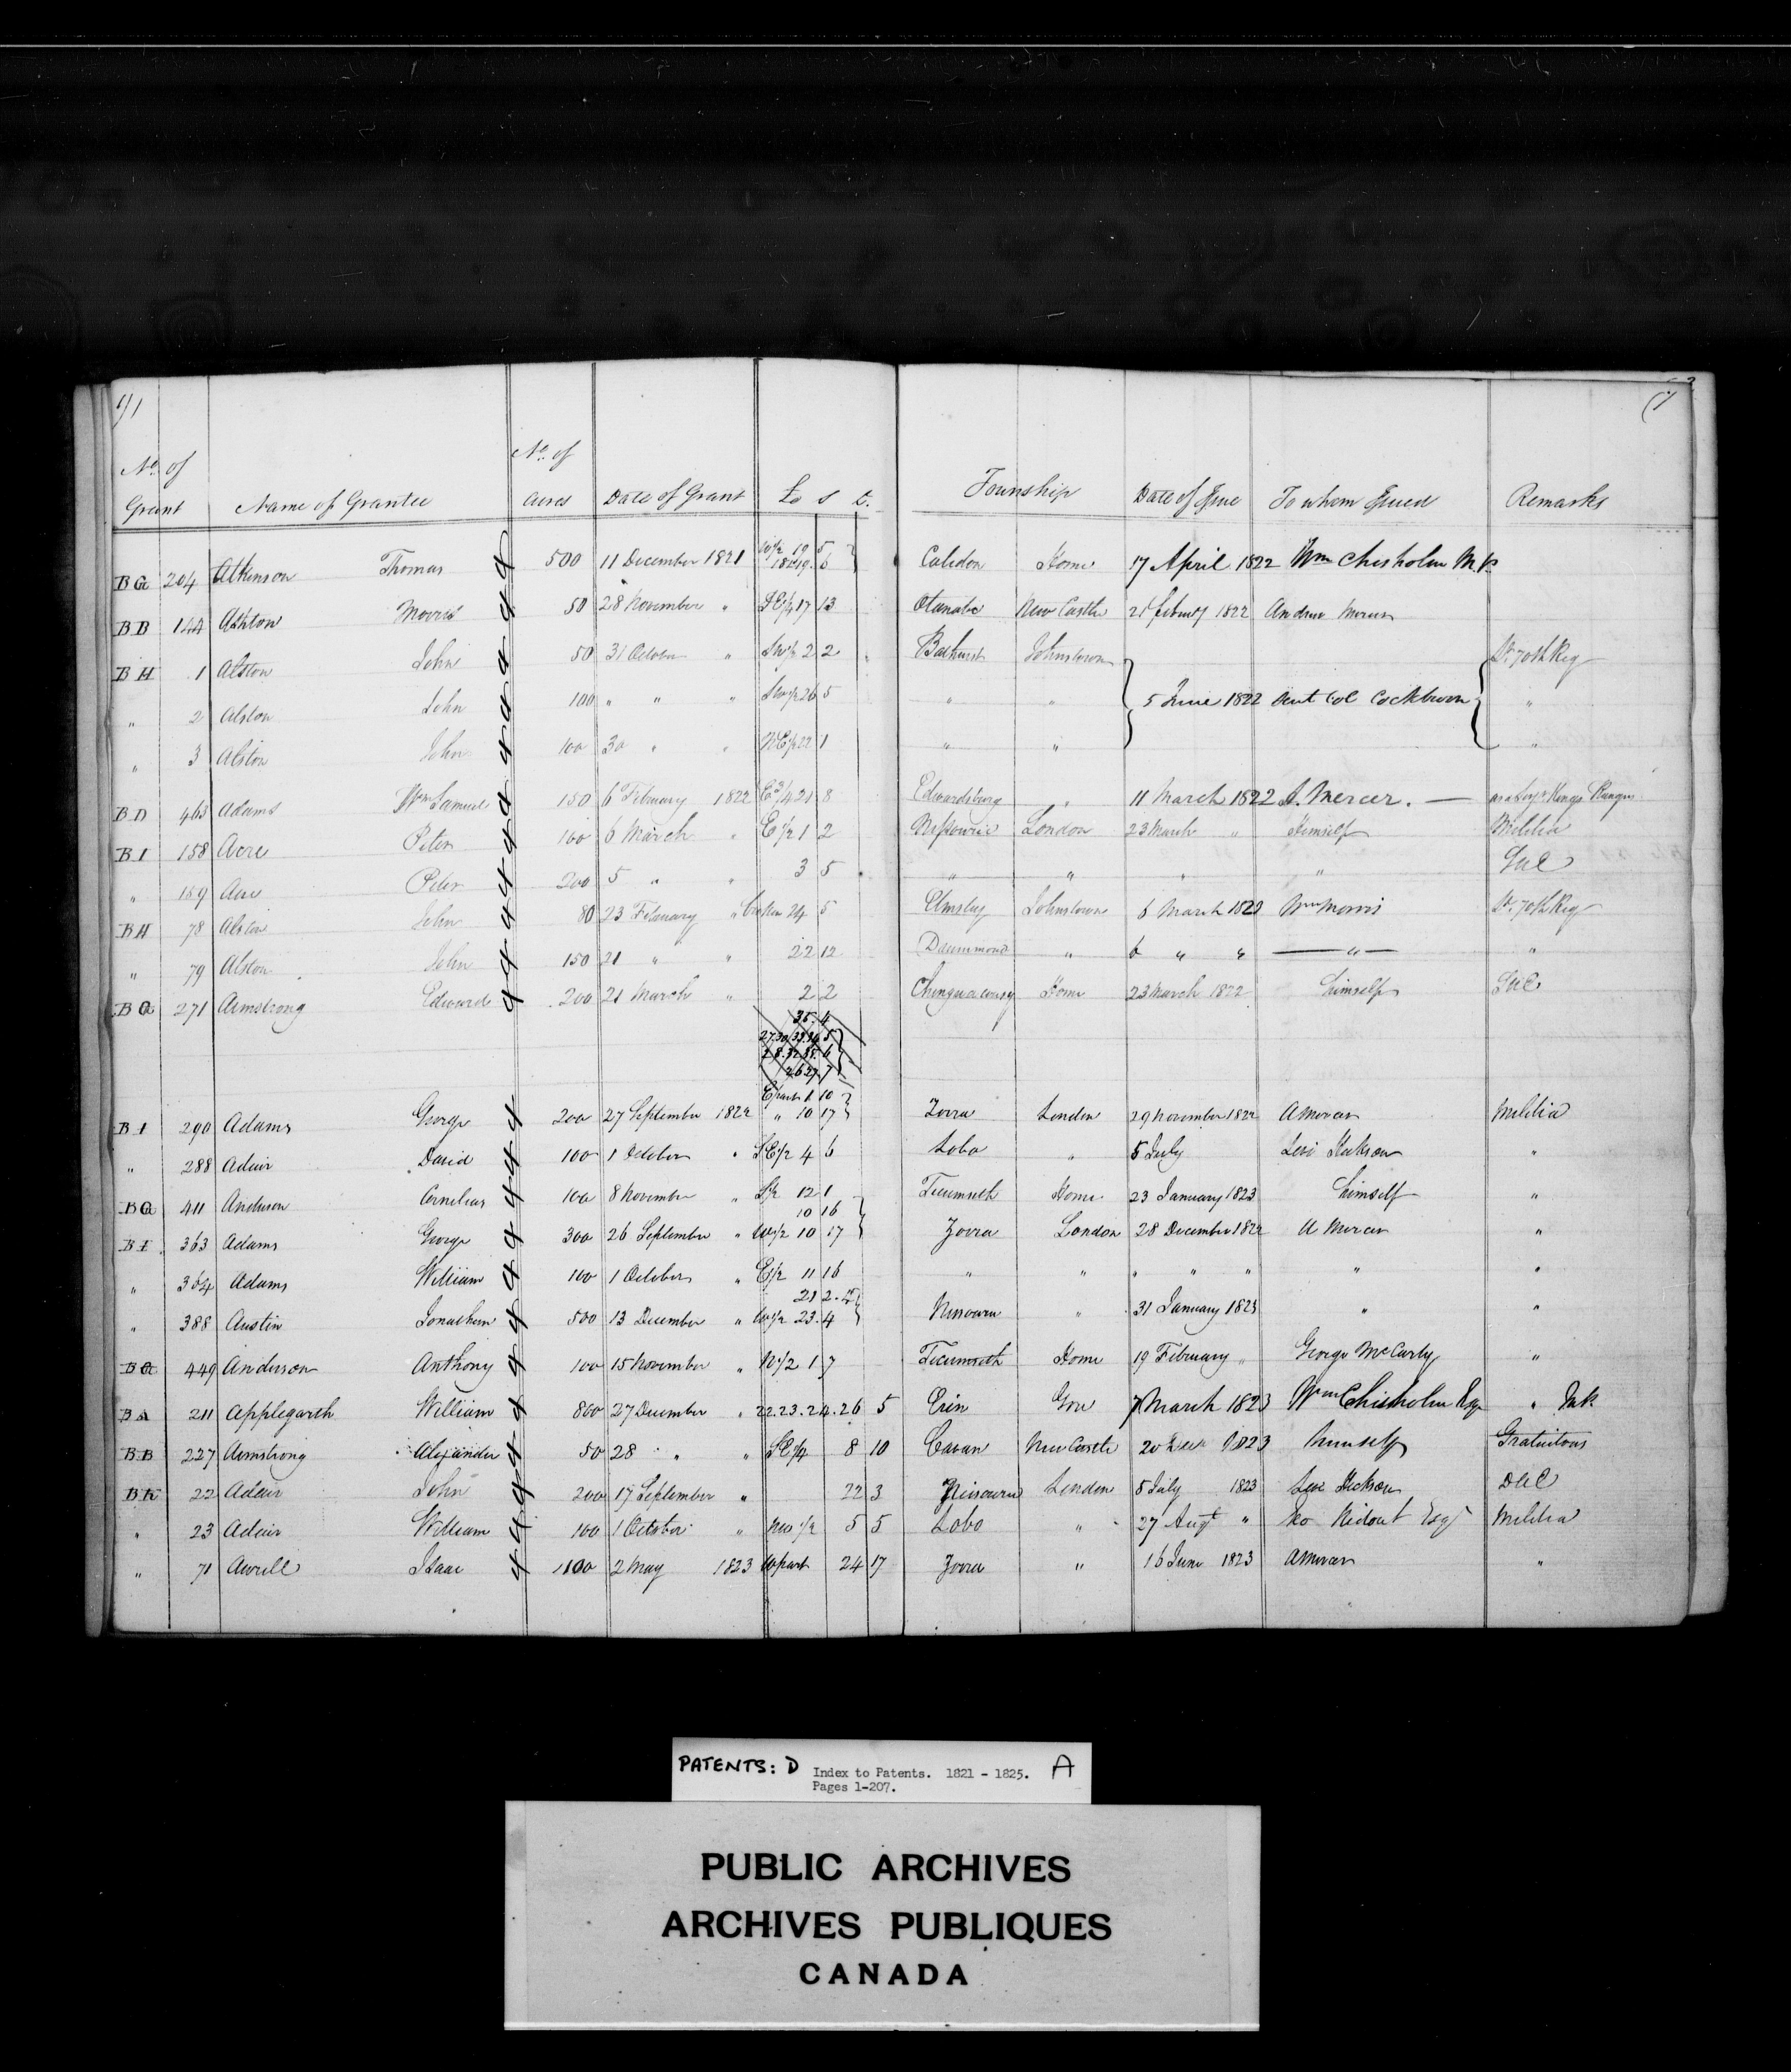 No. of Grant | Name of Grantee | No. of Acres | Date of Grant | Lo s C. | Township | Date of Issue | To whom Issued | Remarks
BG 204 Atkinson Thomas 4 500 11 December 1821 W 1/2 19 5 Caledon Home 17 April 1822 Wm Chisholm
6
BB 144 Ashton 4 50 28 November " SE 1/4 17 13 Otanabe New Castle 21 1822 Andrew Mercer
BH 1 Alston John 4 50 31 October " 2 2 Bathurst Johnstown 70th Reg
" 2 Alston John 4 100 " " " 26 5 " " 5 June 1822 Col Cockburn "
" 3 Alston John 4 100 30 " " NE 1/2 22 1 " " "
BD 463 Adams Wm Samuel 4 150 6 February 1822 E 3/4 21 8 Edwardsburg " 11 March 1822 A. Mercer. — Kings Rangers
BI 158 Acre Peter 4 100 6 March " E 1/2 1 2 London 23 March " Himself Militia
" 159 Acre Peter 4 200 5 " " 3 5 " " " "
BH 78 Alston John 4 80 23 February " broken 24 5 Elmsley Johnstown 6 March Wm Morris 70th Reg
" 79 Alston John 4 150 21 " " 22 12 Drummond " 6 " " — " — "
BG 271 Armstrong Edward 4 200 21 March " 2 2 Chinguacousy Home 23 March 1822 himself
35. 4
27.30 33.34 5
28.32.35. 6
26 27. 7
E part 1 10
BI 290 Adams George 4 200 27 September 1822 " 10 17 Zorra London 29 November 1822 A Mercer Militia
" 288 Adair David 4 100 1 October " SE 1/2 4 6 Lobo " 5 July "
BG 411 Anderson Cornelius 4 100 8 November " S 1/2 12 1 Tecumseth Home 23 January 1823 himself "
10 16
BI 363 Adams George 4 300 26 September " W 1/2 10 17 Zorra London 28 December 1822 A Mercer "
" 364 Adams William 4 100 1 October " E 1/2 11 16 " " " " " " "
21 2.
" 388 Austin Jonathan 4 500 13 December " W 1/2 23. 4 Nissouri " 31 January 1823 " "
BG 449 Anderson Anthony 4 100 15 November " N 1/2 1 7 Tecumseth Home 19 February " George McCarty "
BA 211 Applegarth William 4 800 27 December " 22.23.24.26 5 Erin Gore 7 March 1823 Wm Chisholm Esqr "
BB 227 Armstrong Alexander 4 50 28 " " SE 1/4 8 10 Cavan New Castle 20 1823 himself Gratuitous
BK 22 Adair John 4 200 17 September " 22 3 Nissouri London 8 July 1823
" 23 Adair William 4 100 1 October " 1/2 5 5 Lobo " 27 Augt " Ridout Esqr Militia
" 71 Averill Isaac 4 1100 2 May 1823 W part 24 17 Zorra " 16 June 1823 A Mercer "
PATENTS: D Index to Patents. 1821 - 1825. A
Pages 1-207.
PUBLIC ARCHIVES
ARCHIVES PUBLIQUES
CANADA